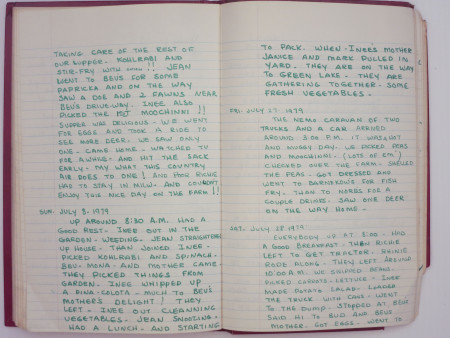 TAKING CARE OF THE REST OF
OUR SUPPER. KOHLRABI AND
STIR-FRY WITH !!! JEAN
WENT TO BEV'S FOR SOME
PAPRICKA AND ON THE WAY
SAW A DOE AND 2 FAWNS NEAR
BEV'S DRIVE-WAY. INEE ALSO
PICKED THE MOOCHINNI !!
SUPPER WAS DELICIOUS - WE WENT
FOR EGGS AND TOOK A RIDE TO
SEE MORE DEER. WE SAW ONLY
ONE - CAME HOME - WATCHED TV
FOR AWHILE - AND HIT THE SACK
EARLY - MY WHAT THIS COUNTRY
AIR DOES TO ONE! AND POOR RICHIE
HAS TO STAY IN MILW. AND COULDN'T
ENJOY THIS NICE DAY ON THE FARM!!
SUN. JULY 8, 1979
UP AROUND 8:30 A.M. HAD A
GOOD REST. INEE OUT IN THE
GARDEN - WEEDING. JEAN STRAIGHTENED
UP HOUSE. THAN JOINED INEE -
PICKED KOHLRABI AND SPINACH.
BEV - MONA - AND MOTHER CAME
THEY PICKED THINGS FROM
GARDEN. INEE WHIPPED UP
A PINA-COLOTA - MUCH TO BEV'S
MOTHER'S DELIGHT! THEY
LEFT. INEE OUT CLEANNING
VEGETABLES. JEAN SNOOZING.
HAD A LUNCH - AND STARTING
TO PACK. WHEN INEE'S MOTHER
JANICE AND MARK PULLED IN
YARD. THEY ARE ON THE WAY
TO GREEN LAKE. THEY ARE
GATHERING TOGETHER SOME
FRESH VEGETABLES.
FRI. JULY 27, 1979
THE NEMO CARAVAN OF TWO
TRUCKS AND A CAR ARRIVED
AROUND 3:00 P.M. IT WAS HOT
AND MUGGY DAY. WE PICKED PEAS
AND MOOCHINNI. (LOTS OF EM.)
CHECKED OVER THE FARM. SHELLED
THE PEAS. GOT DRESSED AND
WENT TO FOR FISH
FRY. THAN TO NORB'S FOR A
COUPLE DRINKS. SAW ONE DEER
ON THE WAY HOME.
SAT. JULY 28, 1979
EVERYBODY UP AT 8:00. HAD
A GOOD BREAKFAST. THAN RICHIE
LEFT TO GET TRACTOR.
RODE ALONG. THEY LEFT AROUND
10:00 A.M. WE SNIPPED BEANS -
PICKED CARROTS - LETTUCE. INEE
MADE POTATO SALAD. LOADED
THE TRUCK WITH CANS - WENT
TO THE DUMP - STOPPED AT BEV'S
SAID HI TO BUD AND BEV'S
MOTHER. GOT EGGS. WENT TO